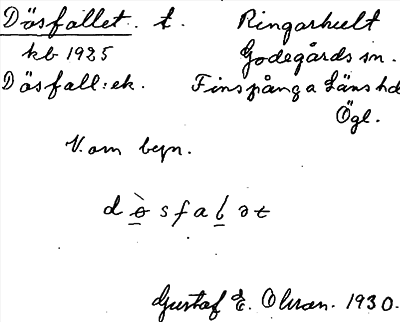 Dösfallet. t. Ringarhult
kb 1925 Godegårds sn.
Dösfall: ek. Finspånga Läns hd
Ögl.
V. om byn.
d ò s f a l ə t
Gustaf E. Olsson. 1930.